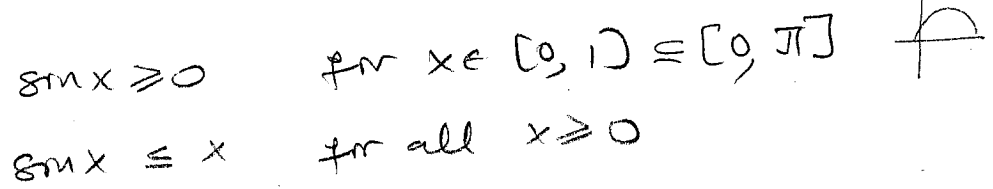 sin x ≥ 0 for x ∈ [0, 1] ⊆ [0, π]
sin x ≤ x for all x ≥ 0